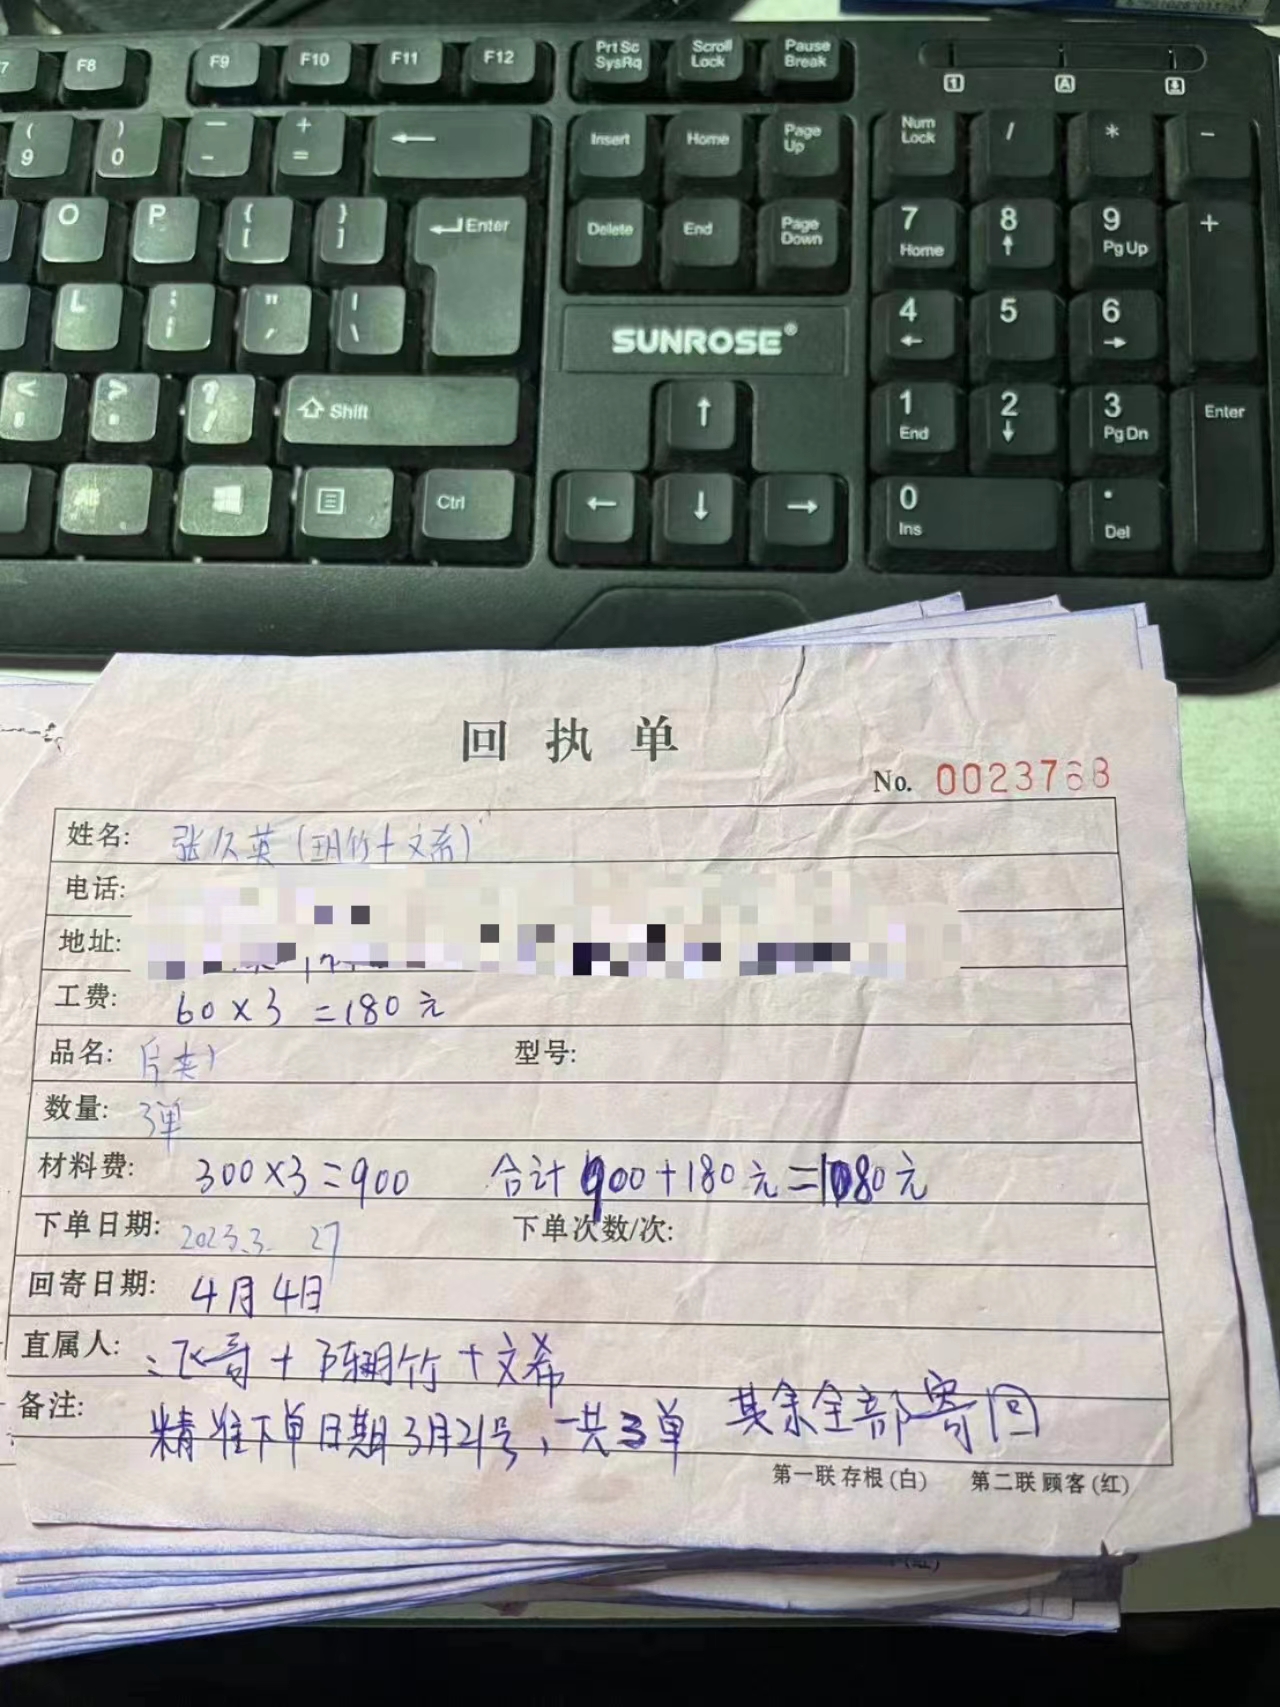 F7 F8 F9 F10 F11 F12 Prt Sc SysRq Scroll Lock Pause Break
1 A
( 9 ) 0 — - + = ← Insert Home Page Up Num Lock / * -
O P { [ } ] Enter Delete End Page Down 7 Home 8 ↑ 9 Pg Up +
L : ; " ' | \ SUNROSE® 4 ← 5 6 →
< , > . ? / Shift ↑ 1 End 2 ↓ 3 Pg Dn Enter
Ctrl ← ↓ → 0 Ins . Del
回执单
No. 0023768
姓名: 张久英(玥竹+文希)
电话:
地址:
工费: 60×3=180元
品名: 片夹 型号:
数量: 3单
材料费: 300×3=900 合计900+180元=1080元
下单日期: 2023.3. 27 下单次数/次:
回寄日期: 4月4日
直属人: :飞哥+陈玥竹+文希
备注: 精准下单日期3月21号,一共3单 其余全部寄回
第一联 存根(白) 第二联 顾客(红)